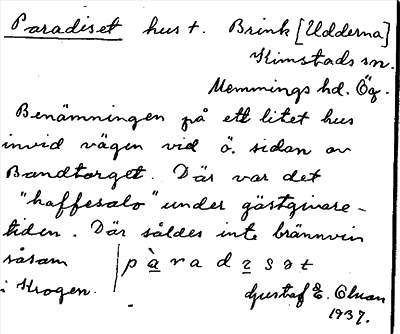 Paradiset hus t. Brink [Udderna]
Kimstads sn.
Memmings hd. Ög.
Benämningen på ett litet hus
invid vägen vid ö. sidan av
Bandtorget. Där var det
"kaffesalo" under gästgivare-
tiden. Där såldes inte brännvin
såsom
i Krogen.
Gustaf E. Olson
1937.